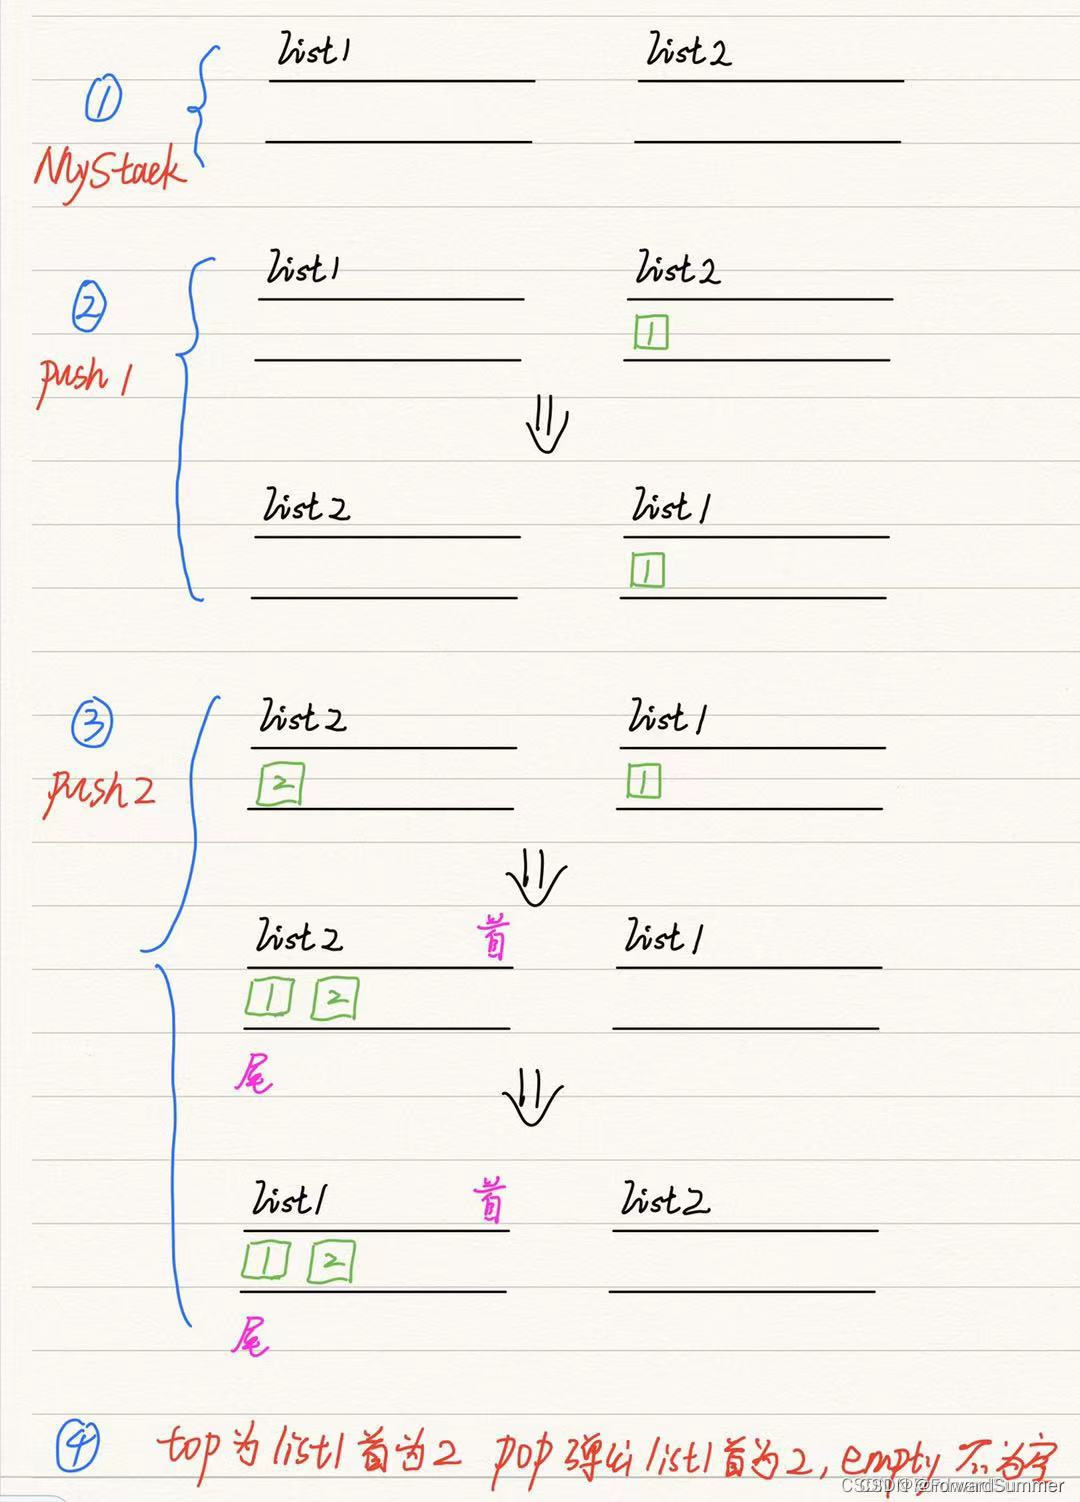 list1 list2
①
MyStack
list1 list2
②
1
push 1
list2 list1
1
list2 list1
③
2 1
push 2
list2 首 list1
1 2
尾
list1 首 list2
1 2
尾
④ top为list1首为2 pop弹出list1首为2, empty 不为空
@ForwardSummer